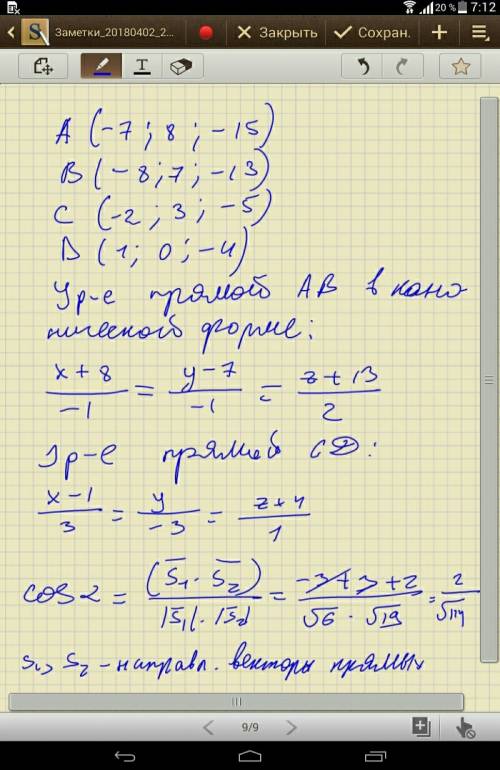 20 % 7:12
Заметки_20180402_2... Закрыть Сохран.
T
A (-7 ; 8 ; -15)
B (-8 ; 7 ; -13)
C (-2 ; 3 ; -5)
D (1 ; 0 ; -4)
Ур-е прямой AB в кано
нической форме:
x + 8 / -1 = y - 7 / -1 = z + 13 / 2
Ур-е прямой CD:
x - 1 / 3 = y / -3 = z + 4 / 1
cos α = (S̅₁ · S̅₂) / |S̅₁| · |S̅₂| = -3 + 3 + 2 / √6 · √19 = 2 / √114
S₁, S₂ - направл. векторы прямых
9/9